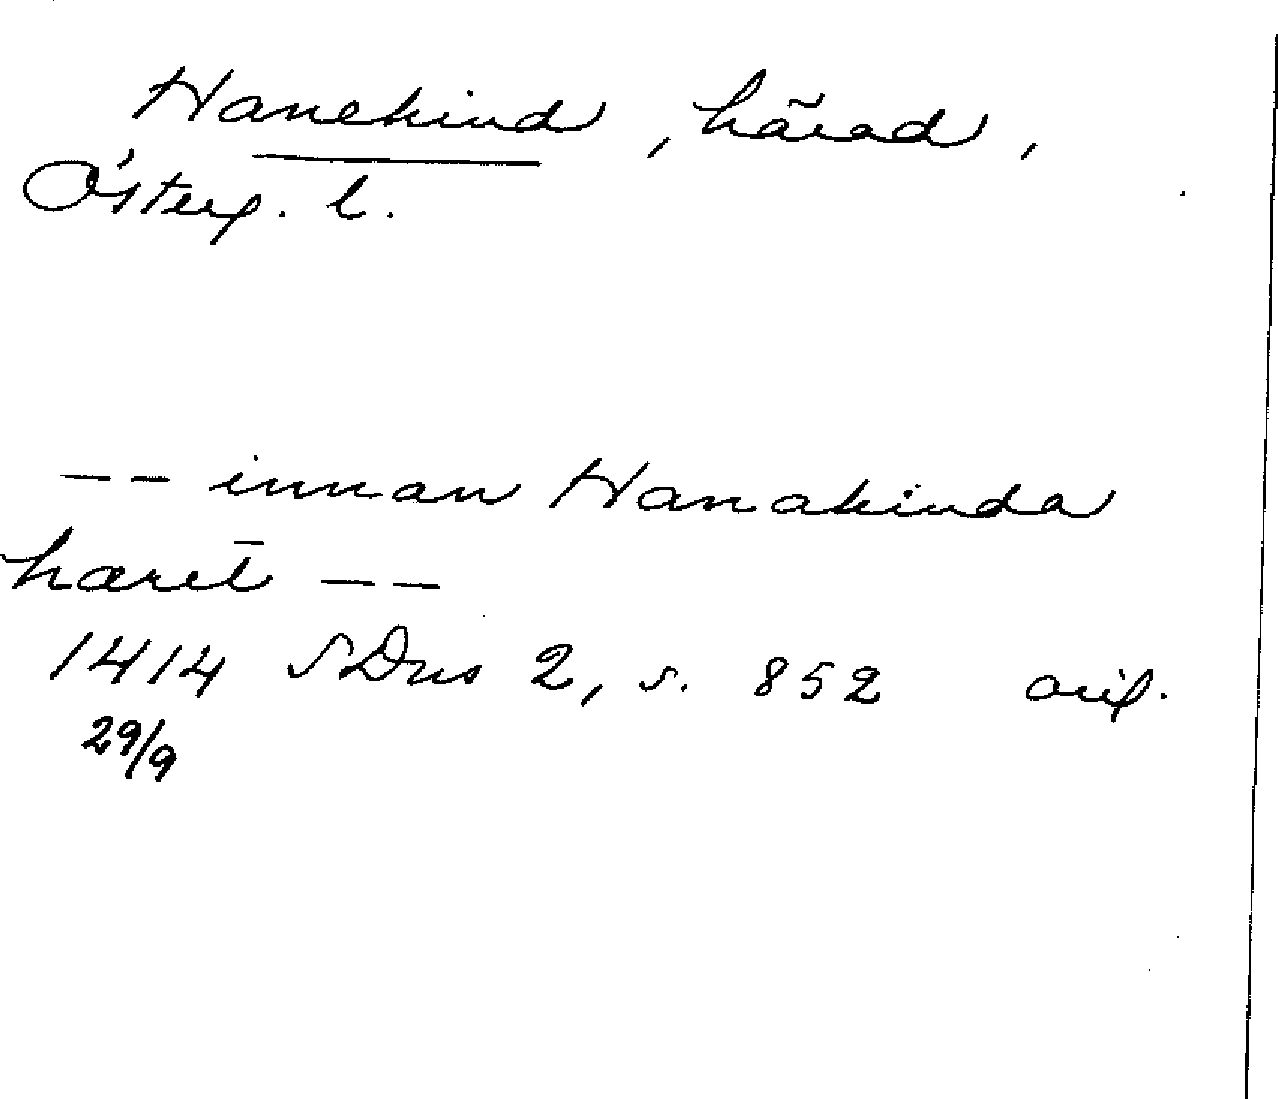 Hanekind, härad,
Österg. l.
-- innan Hanakinda
hæret̄ --
1414 SDns 2, s. 852 orig.
29/9